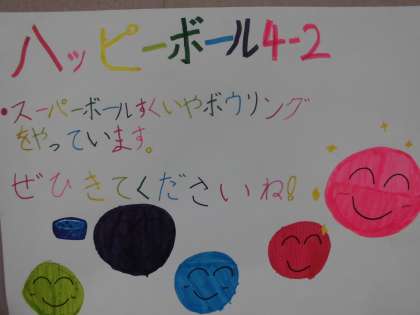 ハッピーボール4-2
・スーパーボールすくいやボウリング
をやっています。
ぜひきてくださいね!